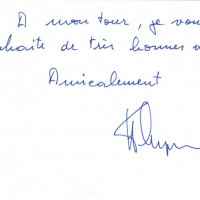 A mon tour, je vou
uhaite de très bonnes v
Amicalement